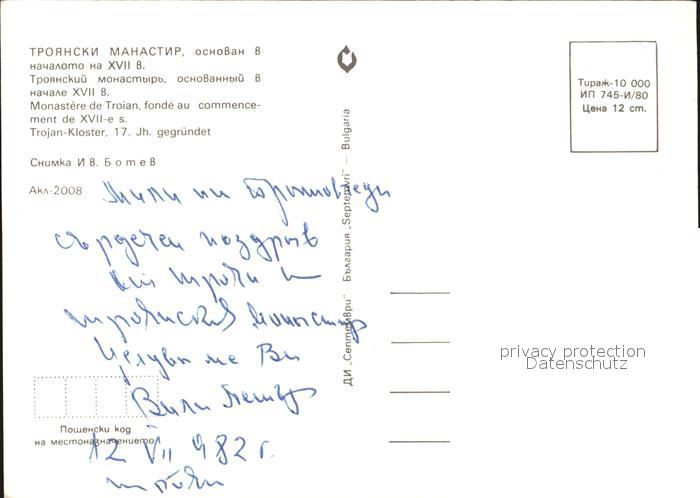 ТРОЯНСКИ МАНАСТИР, основан в
началото на XVII в.
Троянский монастырь, основанный в
начале XVII в.
Monastère de Troian, fondé au commence-
ment de XVII-e s.
Trojan-Kloster, 17. Jh. gegründet
Снимка Ив. Ботев
Акл-2008
Мили ни
сърдечен поздрав
от Троян и
троянския манастир
Целуваме Ви
Ваши
12 VII 982 г.
Троян
Пощенски код
на местоназначението
ДИ „Септември" — България „Septemvri" — Bulgaria
Тираж-10 000
ИП 745-И/80
Цена 12 ст.
privacy protection
Datenschutz